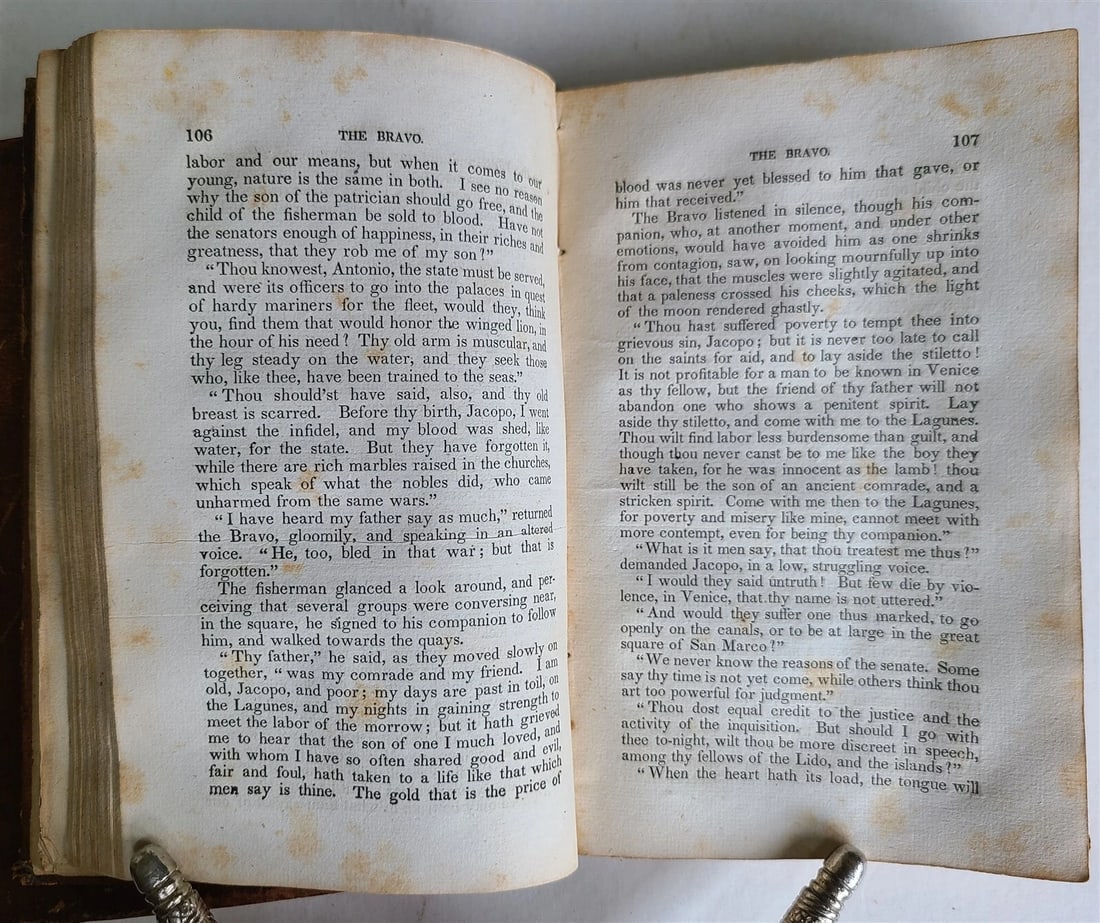 106
THE BRAVO.
labor and our means, but when it comes to our
young, nature is the same in both. I see no reason
why the son of the patrician should go free, and the
child of the fisherman be sold to blood. Have not
the senators enough of happiness, in their riches and
greatness, that they rob me of my son?”
“Thou knowest, Antonio, the state must be served,
and were its officers to go into the palaces in quest
of hardy mariners for the fleet, would they, think
you, find them that would honor the winged lion, in
the hour of his need? Thy old arm is muscular, and
thy leg steady on the water, and they seek those
who, like thee, have been trained to the seas.”
“Thou should'st have said, also, and thy old
breast is scarred. Before thy birth, Jacopo, I went
against the infidel, and my blood was shed, like
water, for the state. But they have forgotten it,
while there are rich marbles raised in the churches,
which speak of what the nobles did, who came
unharmed from the same wars.”
“I have heard my father say as much,” returned
the Bravo, gloomily, and speaking in an altered
voice. “He, too, bled in that war; but that is
forgotten.”
The fisherman glanced a look around, and per-
ceiving that several groups were conversing near,
in the square, he signed to his companion to follow
him, and walked towards the quays.
“Thy father,” he said, as they moved slowly on
together, “was my comrade and my friend. I am
old, Jacopo, and poor; my days are past in toil, on
the Lagunes, and my nights in gaining strength to
meet the labor of the morrow; but it hath grieved
me to hear that the son of one I much loved, and
with whom I have so often shared good and evil,
fair and foul, hath taken to a life like that which
men say is thine. The gold that is the price of
THE BRAVO.
107
blood was never yet blessed to him that gave, or
him that received.”
The Bravo listened in silence, though his com-
panion, who, at another moment, and under other
emotions, would have avoided him as one shrinks
from contagion, saw, on looking mournfully up into
his face, that the muscles were slightly agitated, and
that a paleness crossed his cheeks, which the light
of the moon rendered ghastly.
“Thou hast suffered poverty to tempt thee into
grievous sin, Jacopo; but it is never too late to call
on the saints for aid, and to lay aside the stiletto!
It is not profitable for a man to be known in Venice
as thy fellow, but the friend of thy father will not
abandon one who shows a penitent spirit. Lay
aside thy stiletto, and come with me to the Lagunes.
Thou wilt find labor less burdensome than guilt, and
though thou never canst be to me like the boy they
have taken, for he was innocent as the lamb! thou
wilt still be the son of an ancient comrade, and a
stricken spirit. Come with me then to the Lagunes,
for poverty and misery like mine, cannot meet with
more contempt, even for being thy companion.”
“What is it men say, that thou treatest me thus?”
demanded Jacopo, in a low, struggling voice.
“I would they said untruth! But few die by vio-
lence, in Venice, that thy name is not uttered.”
“And would they suffer one thus marked, to go
openly on the canals, or to be at large in the great
square of San Marco?”
“We never know the reasons of the senate. Some
say thy time is not yet come, while others think thou
art too powerful for judgment.”
“Thou dost equal credit to the justice and the
activity of the inquisition. But should I go with
thee to-night, wilt thou be more discreet in speech,
among thy fellows of the Lido, and the islands?”
“When the heart hath its load, the tongue will